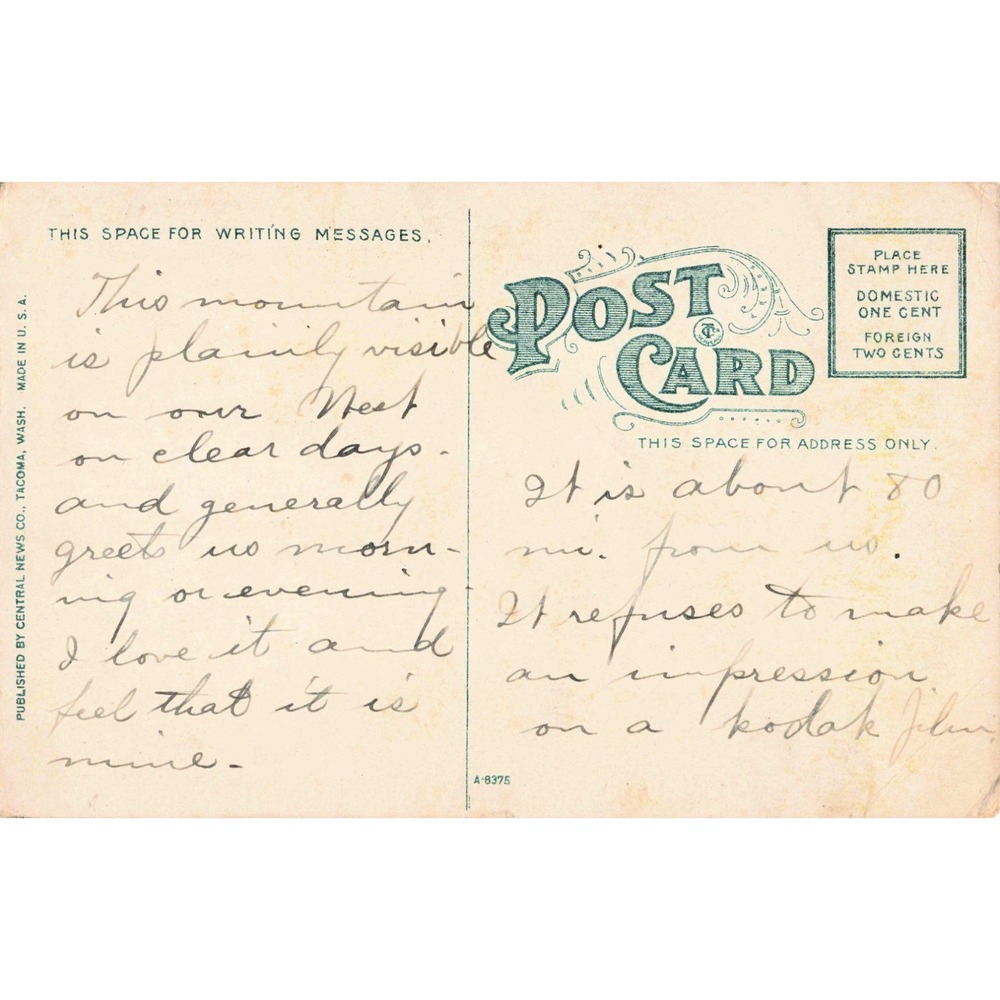 THIS SPACE FOR WRITING MESSAGES.
This mountain
is plainly visible
on our West
on clear days.
and generally
greets us morn-
ing or evening.
I love it and
feel that it is
mine.-
PUBLISHED BY CENTRAL NEWS CO., TACOMA, WASH. MADE IN U. S. A.
POST
CARD
PLACE
STAMP HERE
DOMESTIC
ONE CENT
FOREIGN
TWO CENTS
THIS SPACE FOR ADDRESS ONLY.
It is about 80
mi. from us.
It refuses to make
an impression
on a kodak film.
A-8375